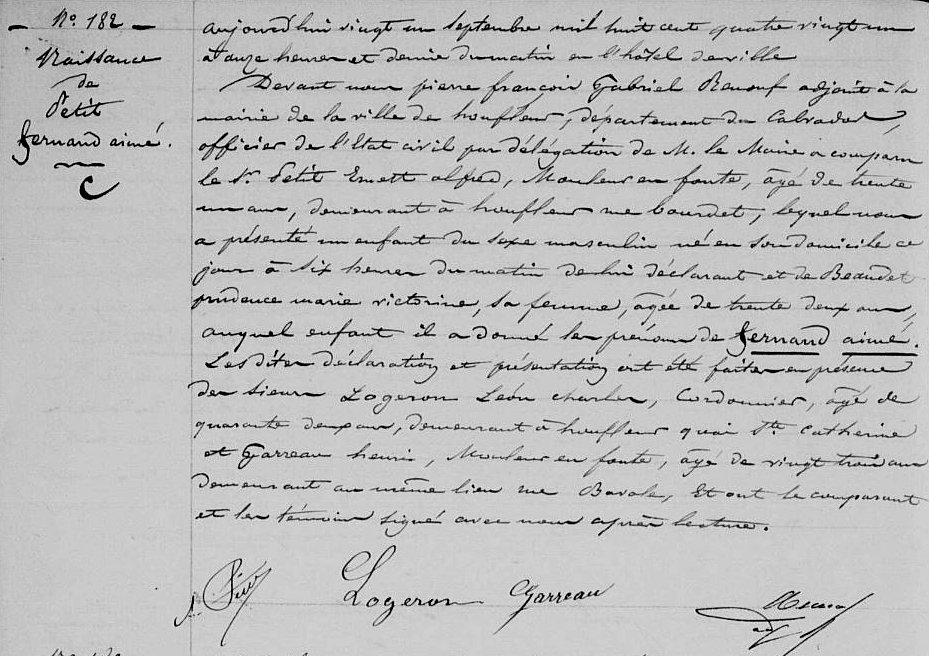 N° 182
Naissance
de
Petit
fernand aimé.
C
aujourd'hui vingt un septembre mil huit cent quatre vingt un
à onze heures et demie du matin en l'hôtel de ville
Devant nous pierre françois Gabriel Renouf adjoint à la
mairie de la ville de honfleur, département du Calvados,
officier de l'Etat civil par délégation de M. le Maire a comparu
le Sr Petit Ernest alfred, Mouleur en fonte, âgé de trente
un ans, demeurant à honfleur rue bourdet, lequel nous
a présenté un enfant du sexe masculin né en son domicile ce
jour à six heures du matin de lui déclarant et de Beaudet
prudence marie victorine, sa femme, âgée de trente deux ans,
auquel enfant il a donné les prénoms de fernand aimé.
Les dites déclaration et présentation ont été faites en présence
des sieurs Logeron Léon charles, Cordonnier, âgé de
quarante deux ans, demeurant à honfleur quai Ste Catherine
et Garreau henri, Mouleur en fonte, âgé de vingt trois ans
demeurant au même lieu rue Bavole, Et ont le comparant
et les témoins signé avec nous après lecture.
Logeron Garreau